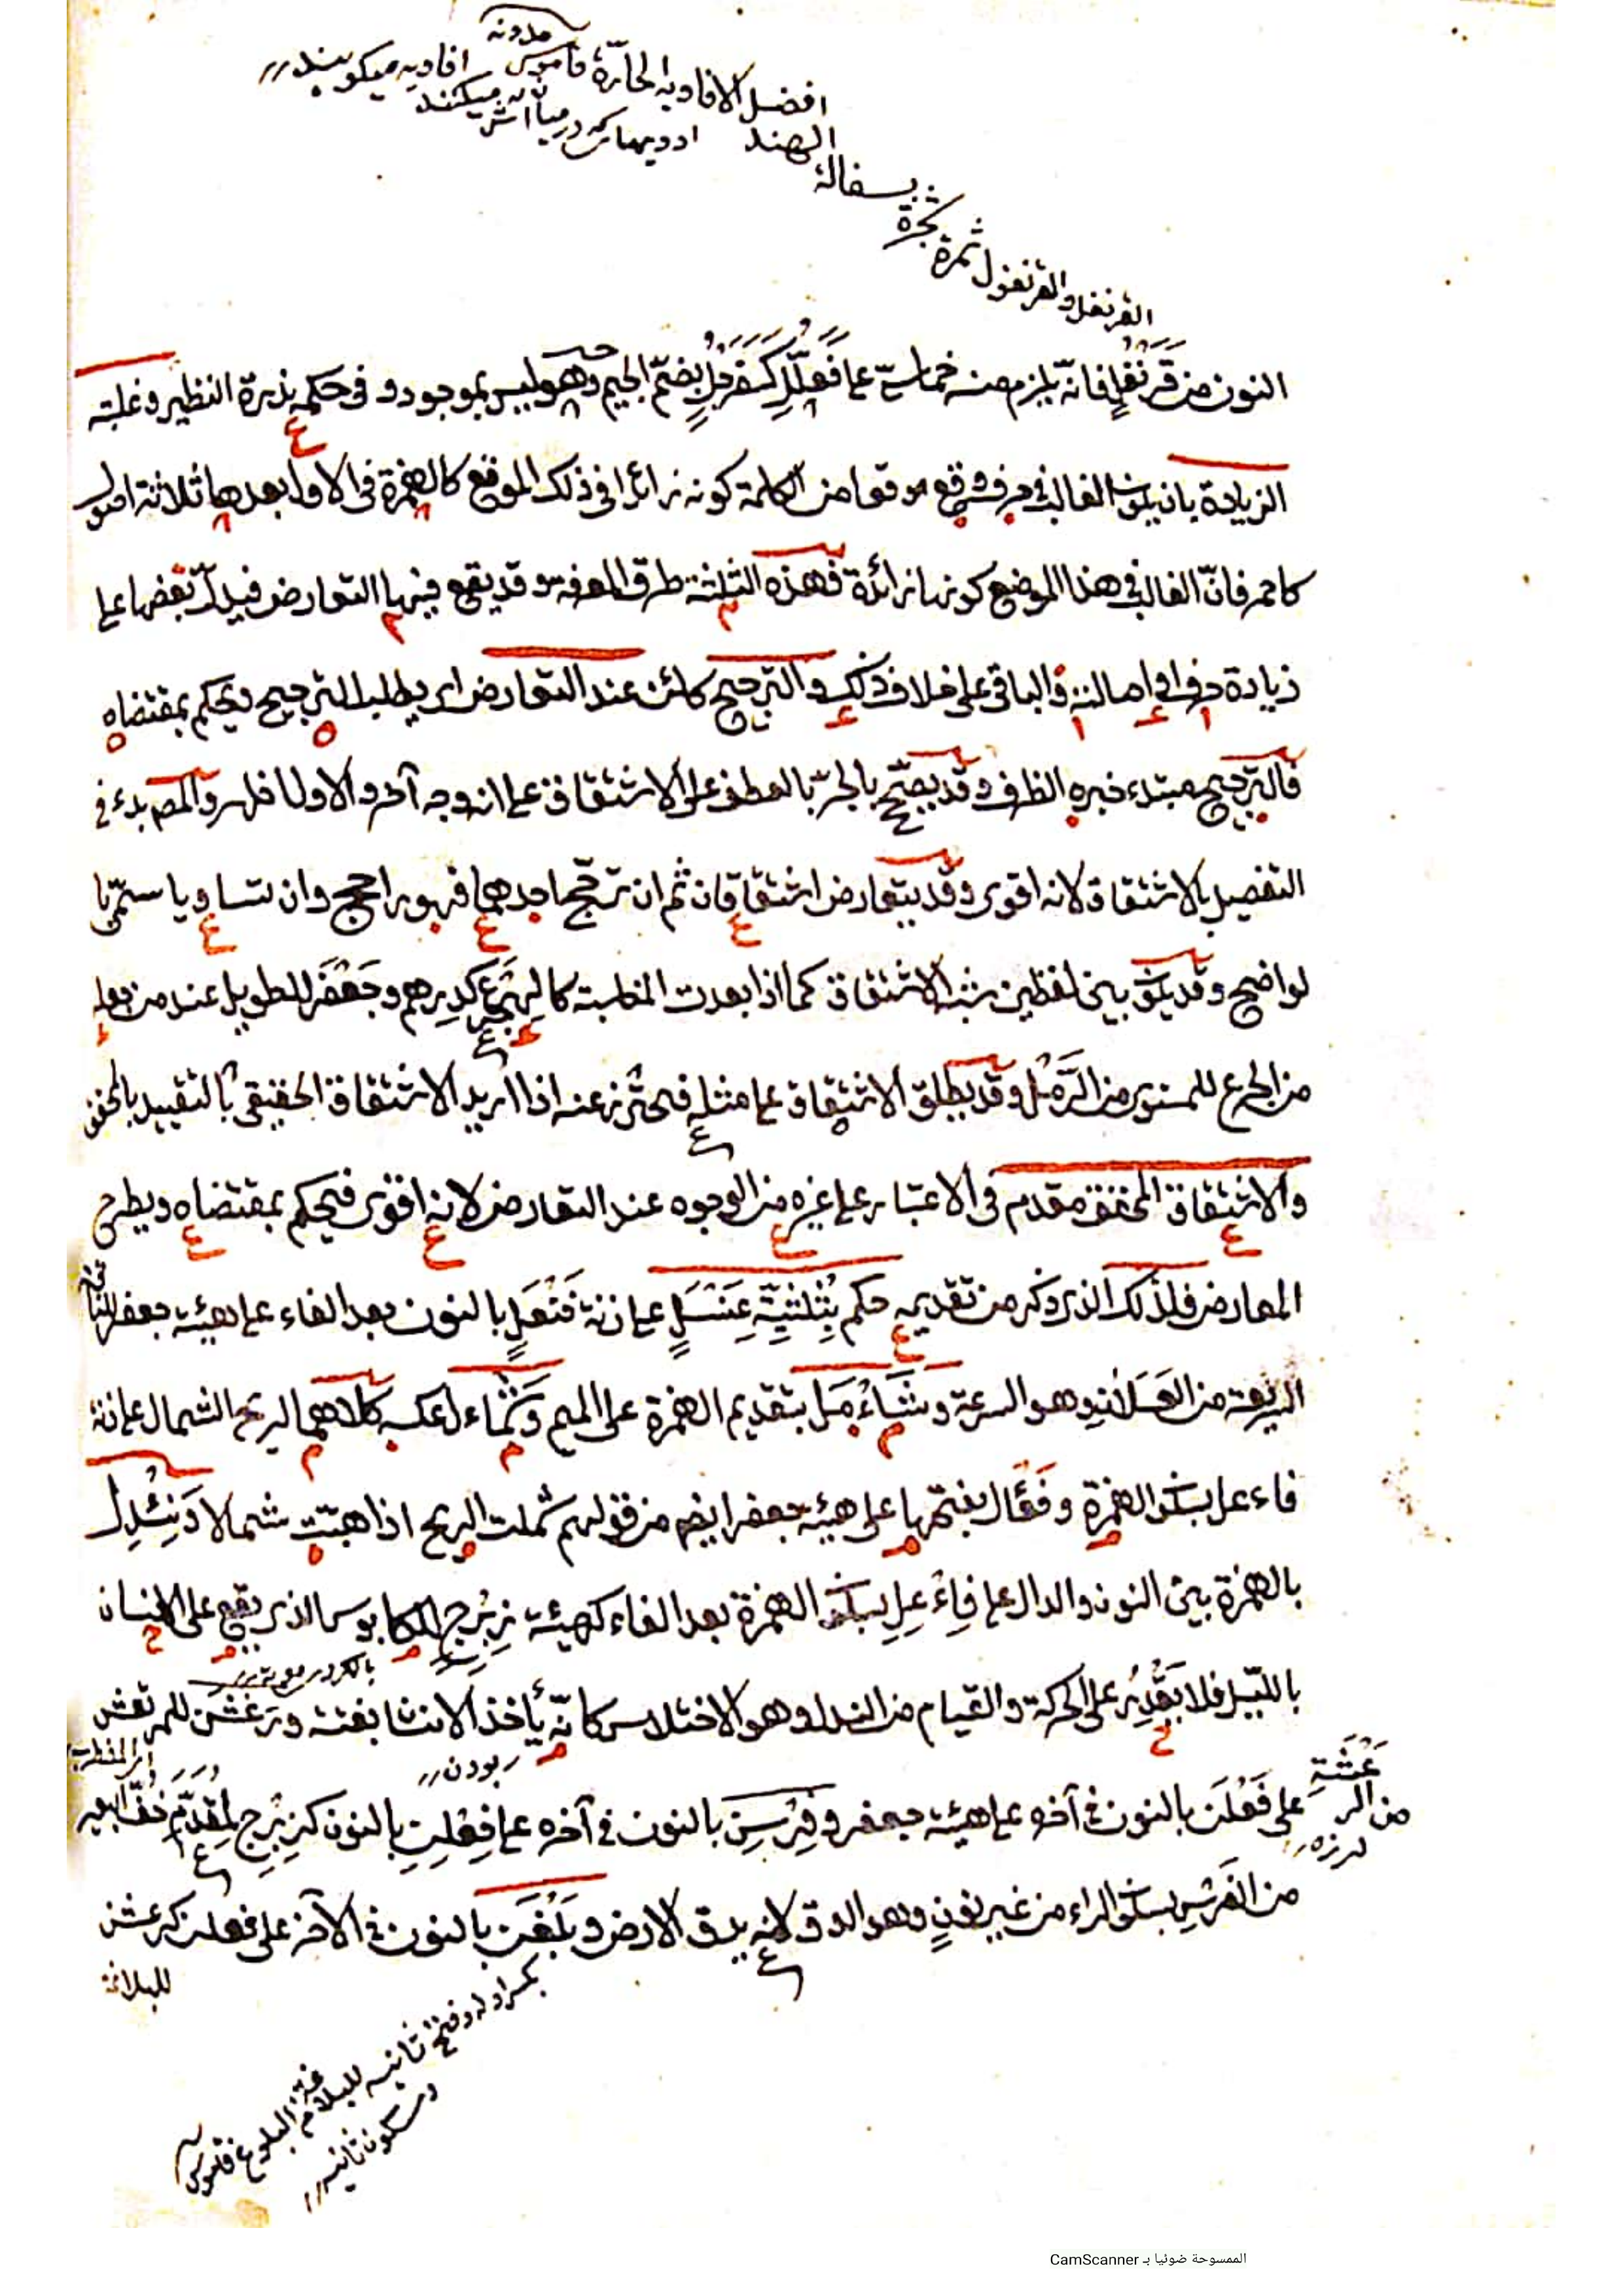 افضل الافاويه الحارّة قاموس افاويه ميكويند
الهند ادويها كه درميانه اش ميكنند
بسفالة
شجرة
القرنفل والقرنفول ثمرة
النون من قَرَنْفُلٍ فانّه يلزم منه خماسيّ على فَعَلُّلٍ كسَفَرجُلٍ بضمّ الجيم وهو ليس بموجود و في حكمه ندرة النظير وغلبته
الزيادة بان يكون الغالب في حرف وقع موقعا من الكلمة كونه زائدا في ذلك الموقع كالهمزة في الاول بعدها ثلاثة اصول
كاحمر فانّ الغالب في هذا الموضع كونها زائدة فهذه الثلثة طرق المعرفة وقد يقع فيها التعارض فيدلّ بعضها على
زيادة حرف او اصالته والباقي على خلاف ذلك والترجيح كائن عند التعارض اى يطلب الترجيح ويحكم بمقتضاه
فالترجيح مبتدء خبره الظرف وقد يصحّح بالجرّ بالعطف على الاشتقاق على انه وجه آخر والاول اظهر والمص بدء في
التفصيل بالاشتقاق لانه اقوى وقد يتعارض اشتقاقان ثم ان ترجّح احدهما فهو راجح وان تساويا سمّيا
لواضح وقد يكون بين لفظين شبه الاشتقاق كما اذا بعدت المناسبة كالهِجْرَع كدِرهم وجَعْفَر للطويل عند من جعله
من الجرع للمستوى من الرَّمْل وقد يطلق الاشتقاق على مثله فيحترز عنه اذا اريد الاشتقاق الحقيقي بالتقييد بالمحقق
والاشتقاق المحقق مقدم في الاعتبار على غيره من الوجوه عند التعارض لانه اقوى فيحكم بمقتضاه ويطرح
المعارض فلذلك الذى ذكر من تقديمه حكم بثُلُثِيَّةِ عَنْسَلٍ على زنة فَنْعَلٍ بالنون بعد الفاء على هيئة جعفر للناقة
السريعة من العَسَلان وهو السرعة وشَأْمَل بتقديم الهمزة على الميم وشَمْأَل لعكسه كلاهما لريح الشمال على زنة
فاءعل بسكون الهمزة وفَعْأَل بفتحها على هيئة جعفر ايضا من قولهم شملت الريح اذا هبّت شمالا ونِئْدِل
بالهمزة بين النون والدال على فِاءْعِل بسكون الهمزة بعد الفاء كهيئة زِبْرِج للكابوس الذى يقع على الانسان
بالليل فلا يقْدِرُ على الحركة والقيام من الندل وهو الاختلاس كانّه يأخذ الانسان بغتة ورَعْشَن للمرتعش
اى المضطرب
ربودن
من الرَّعْشَةِ على فَعْلَن بالنون في آخره على هيئة جعفر وفِرْسِن بالنون في آخره على فِعْلِنٍ بالنون كزِبْرِج لمقدّم خُفّ البعير
لرزه
من الفَرْسِ بسكون الراء من غير نون وهو الدق لانه يدق الارض وبِلَغْن بالنون في الآخر على فعلن كرعشن
للبلاغة
بكسر اوله وفتح ثانيه للبلاغة
وسكون ثانيه
الممسوحة ضوئيا بـ CamScanner